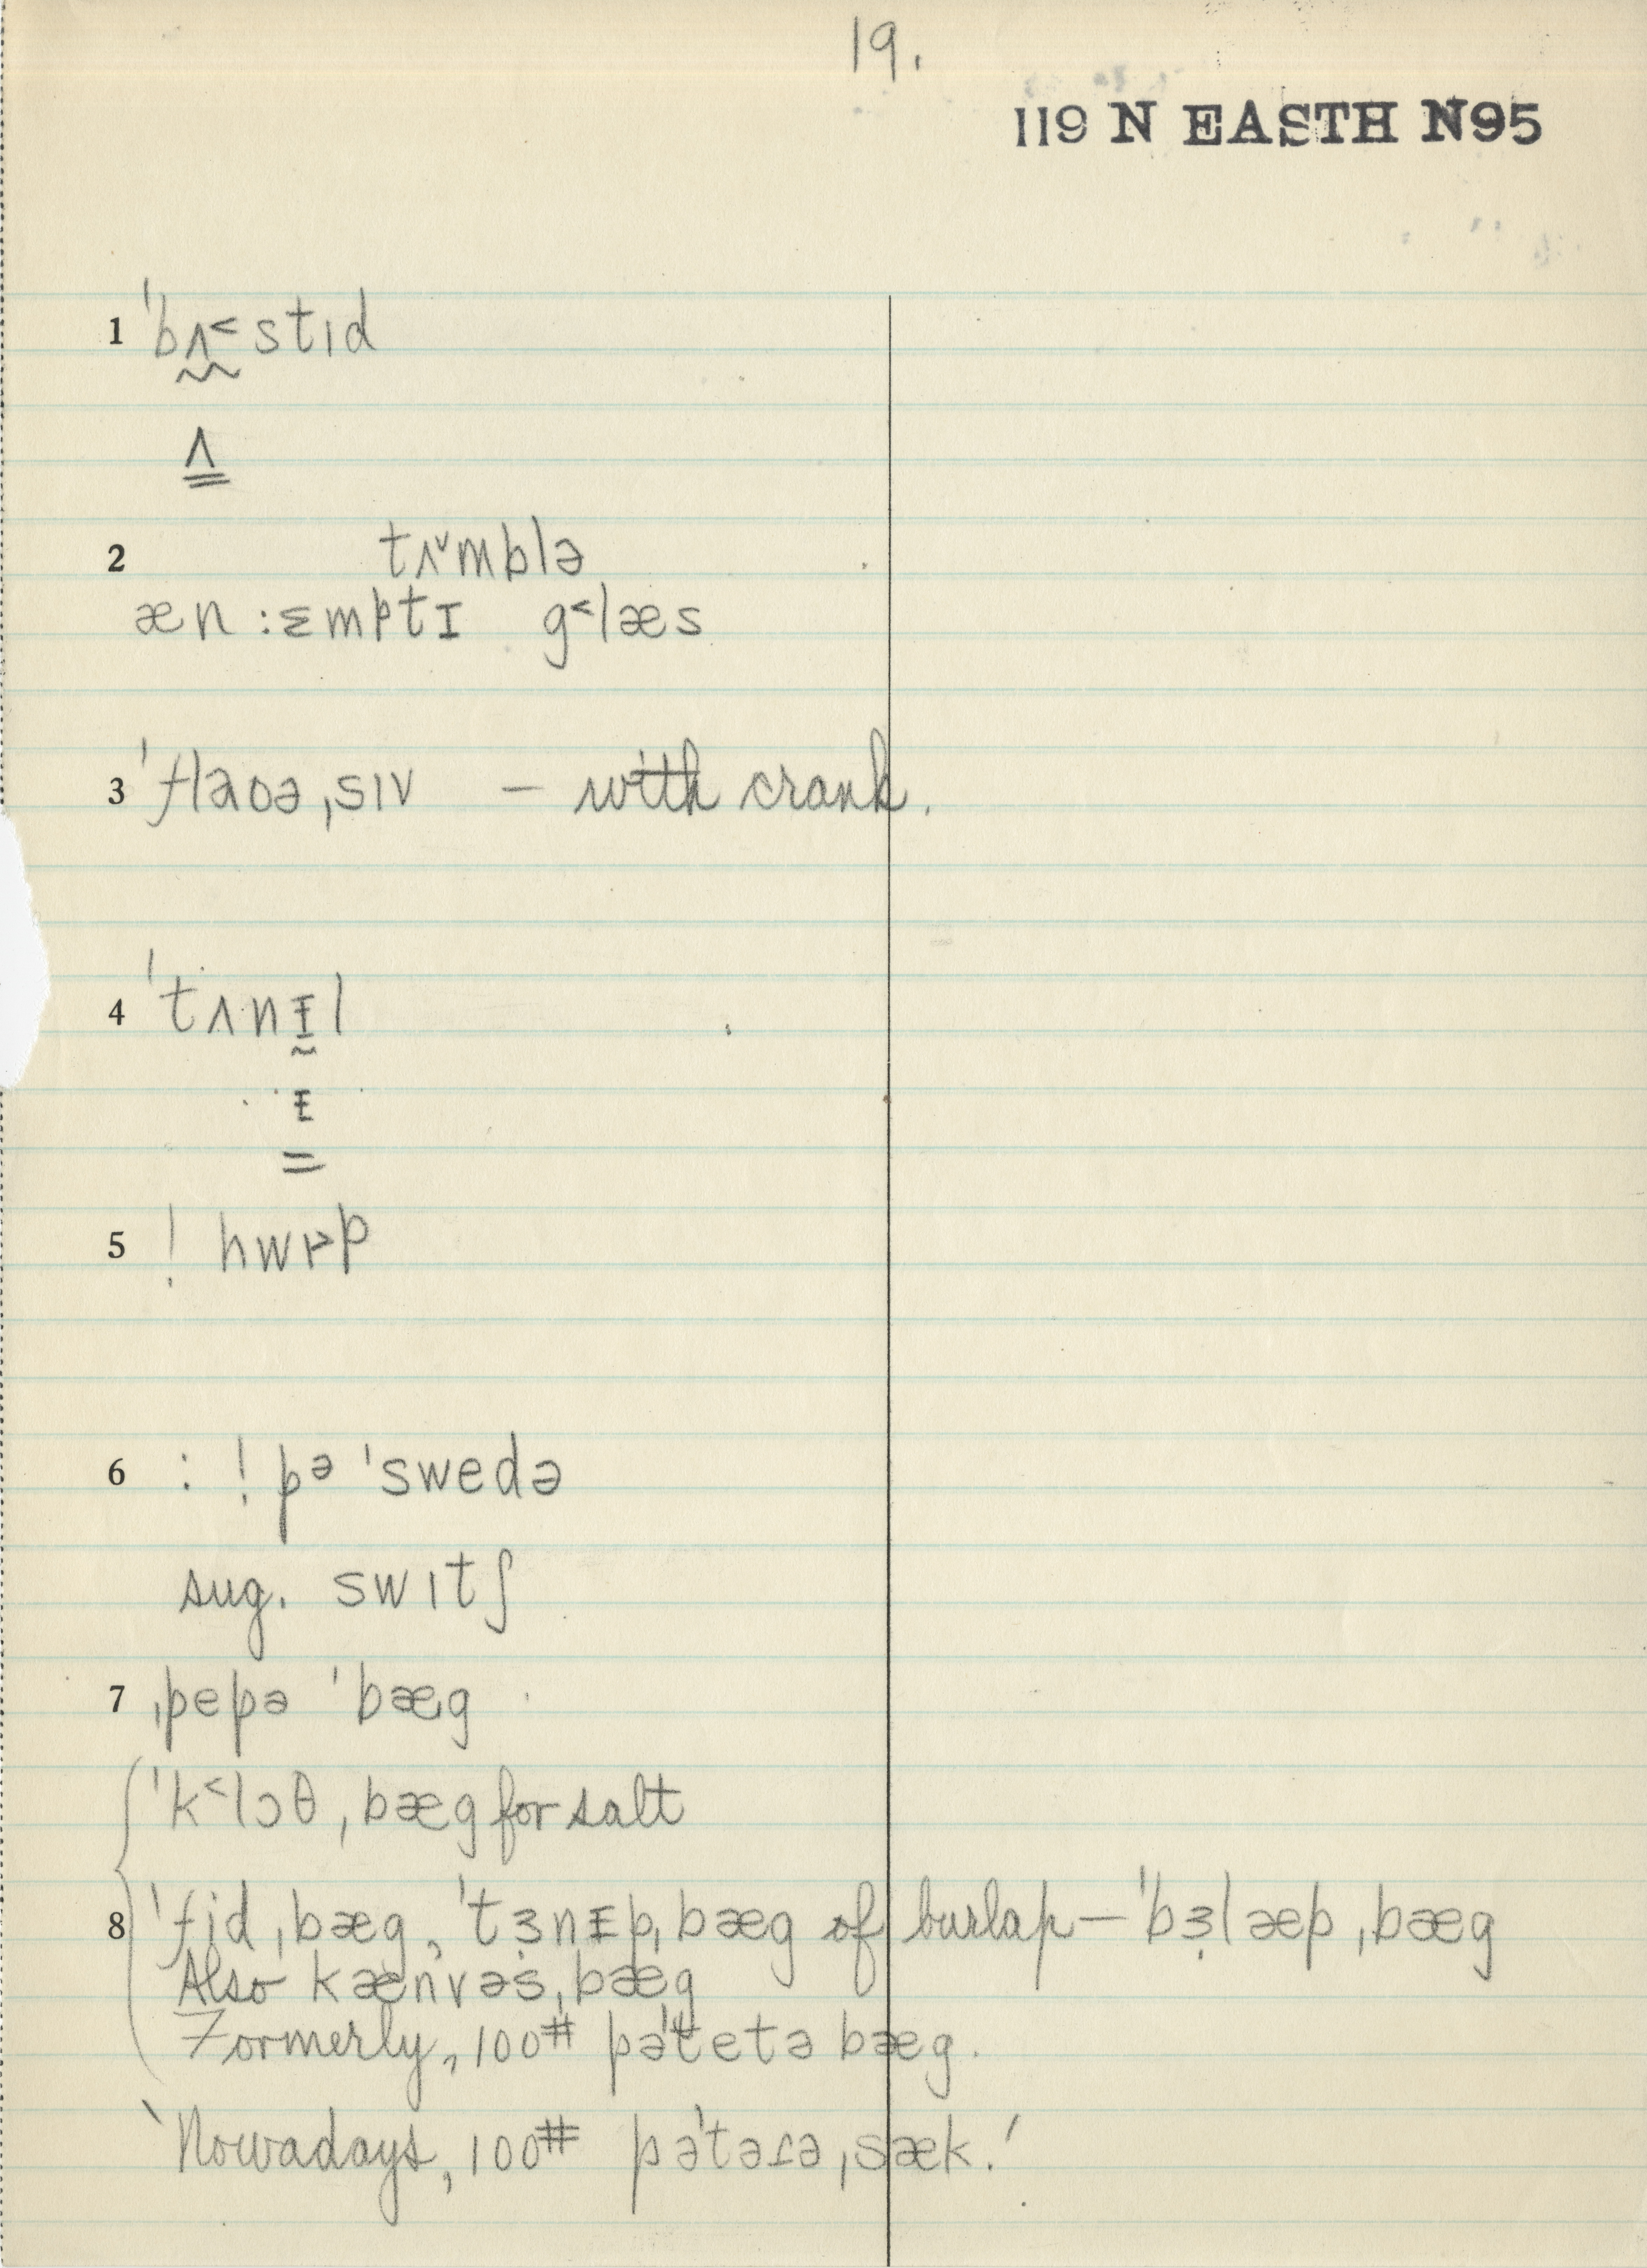 19.
119 N EASTH N95
1 ˈbʌ˂stɪd
ʌ
2 tʌ˅mblə
æn :ɛmptɪ g˂læs
3 ˈflaʊə ˌsɪv – with crank.
4 ˈtʌnᵻl
ᵻ
5 ! hwɪ˃p
6 : ! pə ˈswedə
sug. swɪtʃ
7 ˌpepə ˈbæg
ˈk˂lɔθ ˌbæg for salt
8 ˈfid ˌbæg, ˈtɜnᵻp ˌbæg of burlap – ˈbɜlæp ˌbæg
Also kænvəs ˌbæg
Formerly, 100# pəˈtetə bæg.
'Nowadays, 100# pəˈtəɾə ˌsæk.'